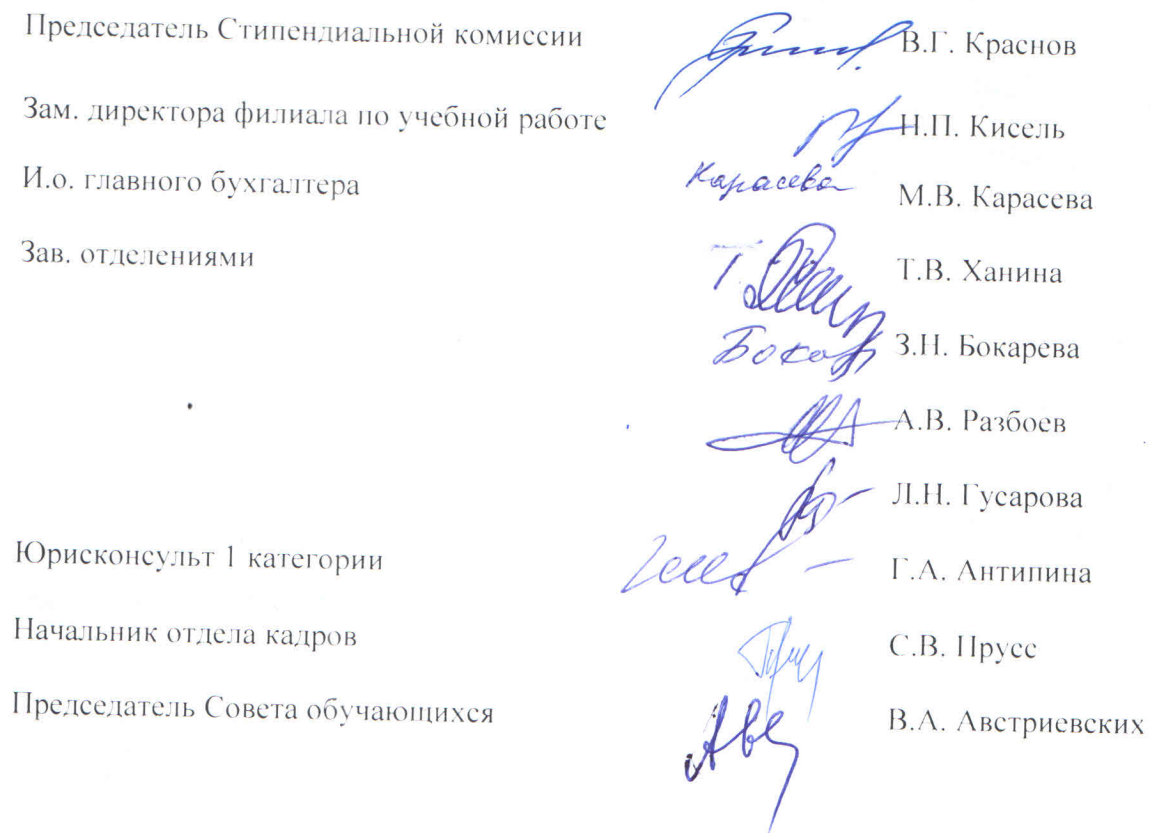 Председатель Стипендиальной комиссии В.Г. Краснов
Зам. директора филиала по учебной работе Н.П. Кисель
И.о. главного бухгалтера Карасева М.В. Карасева
Зав. отделениями Т.В. Ханина
З.Н. Бокарева
А.В. Разбоев
Л.Н. Гусарова
Юрисконсульт 1 категории Г.А. Антипина
Начальник отдела кадров С.В. Прусс
Председатель Совета обучающихся В.А. Австриевских